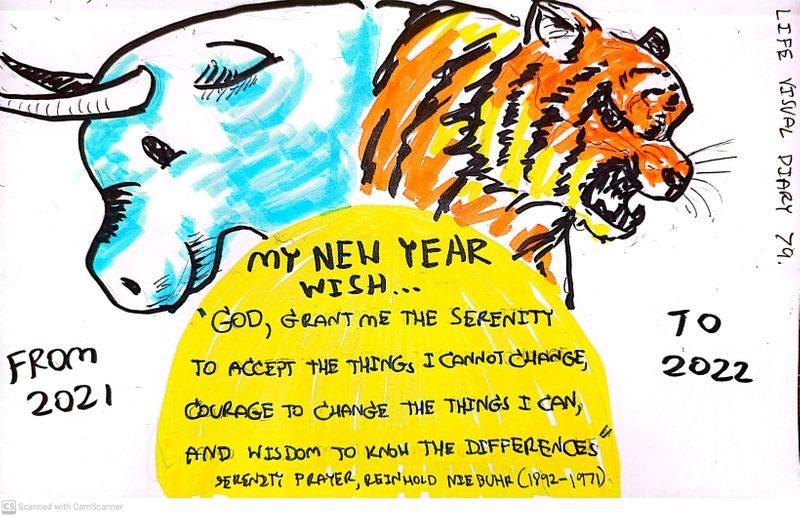 LIFE VISUAL DIARY 79.
MY NEW YEAR
WISH...
"GOD, GRANT ME THE SERENITY
TO ACCEPT THE THINGS I CANNOT CHANGE,
COURAGE TO CHANGE THE THINGS I CAN,
AND WISDOM TO KNOW THE DIFFERENCES"
SERENITY PRAYER, REINHOLD NIEBUHR (1892-1971)
FROM
2021
TO
2022
CS Scanned with CamScanner